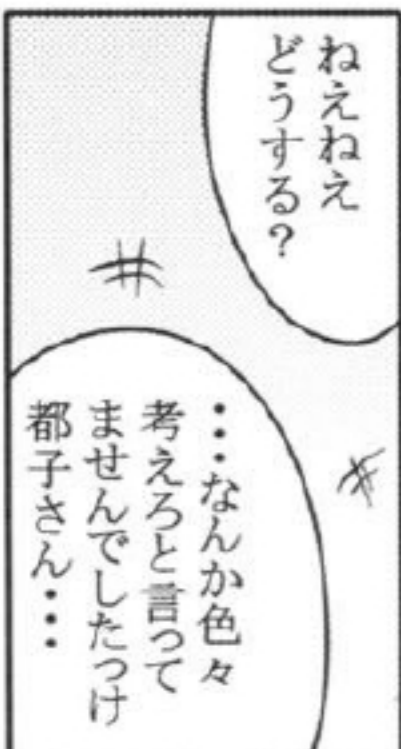 ねえねえ
どうする?
・・・なんか色々
考えろと言って
ませんでしたっけ
都子さん・・・